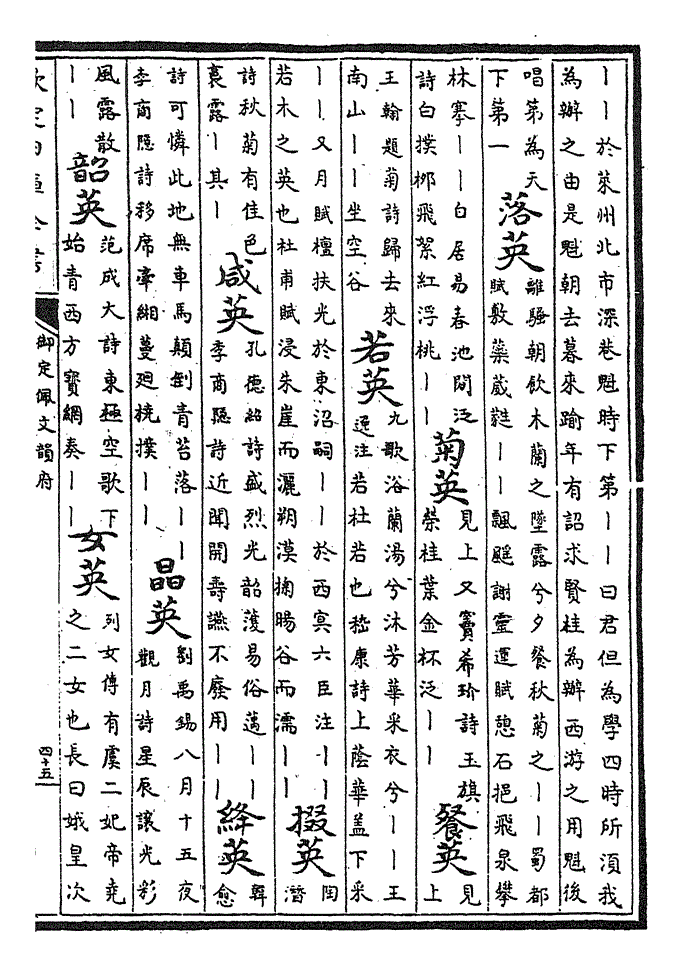 丨丨於萊州北市深巷魁時下第丨丨曰君但為學四時所須我
為辦之由是魁朝去暮來踰年有詔求賢桂為辦西游之用魁後
唱第為天
下第一
落英
離騷朝飲木蘭之墜露兮夕餐秋菊之丨丨蜀都
賦敷蘂葳蕤丨丨飄颻謝靈運賦憩石挹飛泉攀
林搴丨丨白居易春池閒泛
詩白撲柳飛絮紅浮桃丨丨
菊英
見上又竇希玠詩玉旗
縈桂葉金杯泛丨丨
餐英
見
上
王翰題菊詩歸去來
南山丨丨坐空谷
若英
九歌浴蘭湯兮沐芳華采衣兮丨丨王
逸注若杜若也嵇康詩上蔭華蓋下采
丨丨又月賦檀扶光於東沼嗣丨丨於西冥六臣注丨丨
若木之英也杜甫賦浸朱崖而灑朔漠掬暘谷而濡丨丨
掇英
陶
潛
詩秋菊有佳色
裛露丨其丨
咸英
孔德紹詩盛烈光韶濩易俗邁丨丨
李商隱詩近聞開壽讌不廢用丨丨
絳英
韓
愈
詩可憐此地無車馬顛倒青苔落丨丨
李商隱詩移席牽緗蔓迴橈撲丨丨
晶英
劉禹錫八月十五夜
觀月詩星辰讓光彩
風露散
丨丨
韶英
范成大詩東極空歌下
始青西方寶網奏丨丨
女英
列女傳有虞二妃帝堯
之二女也長曰娥皇次
欽定四庫全書
御定佩文韻府
四十五